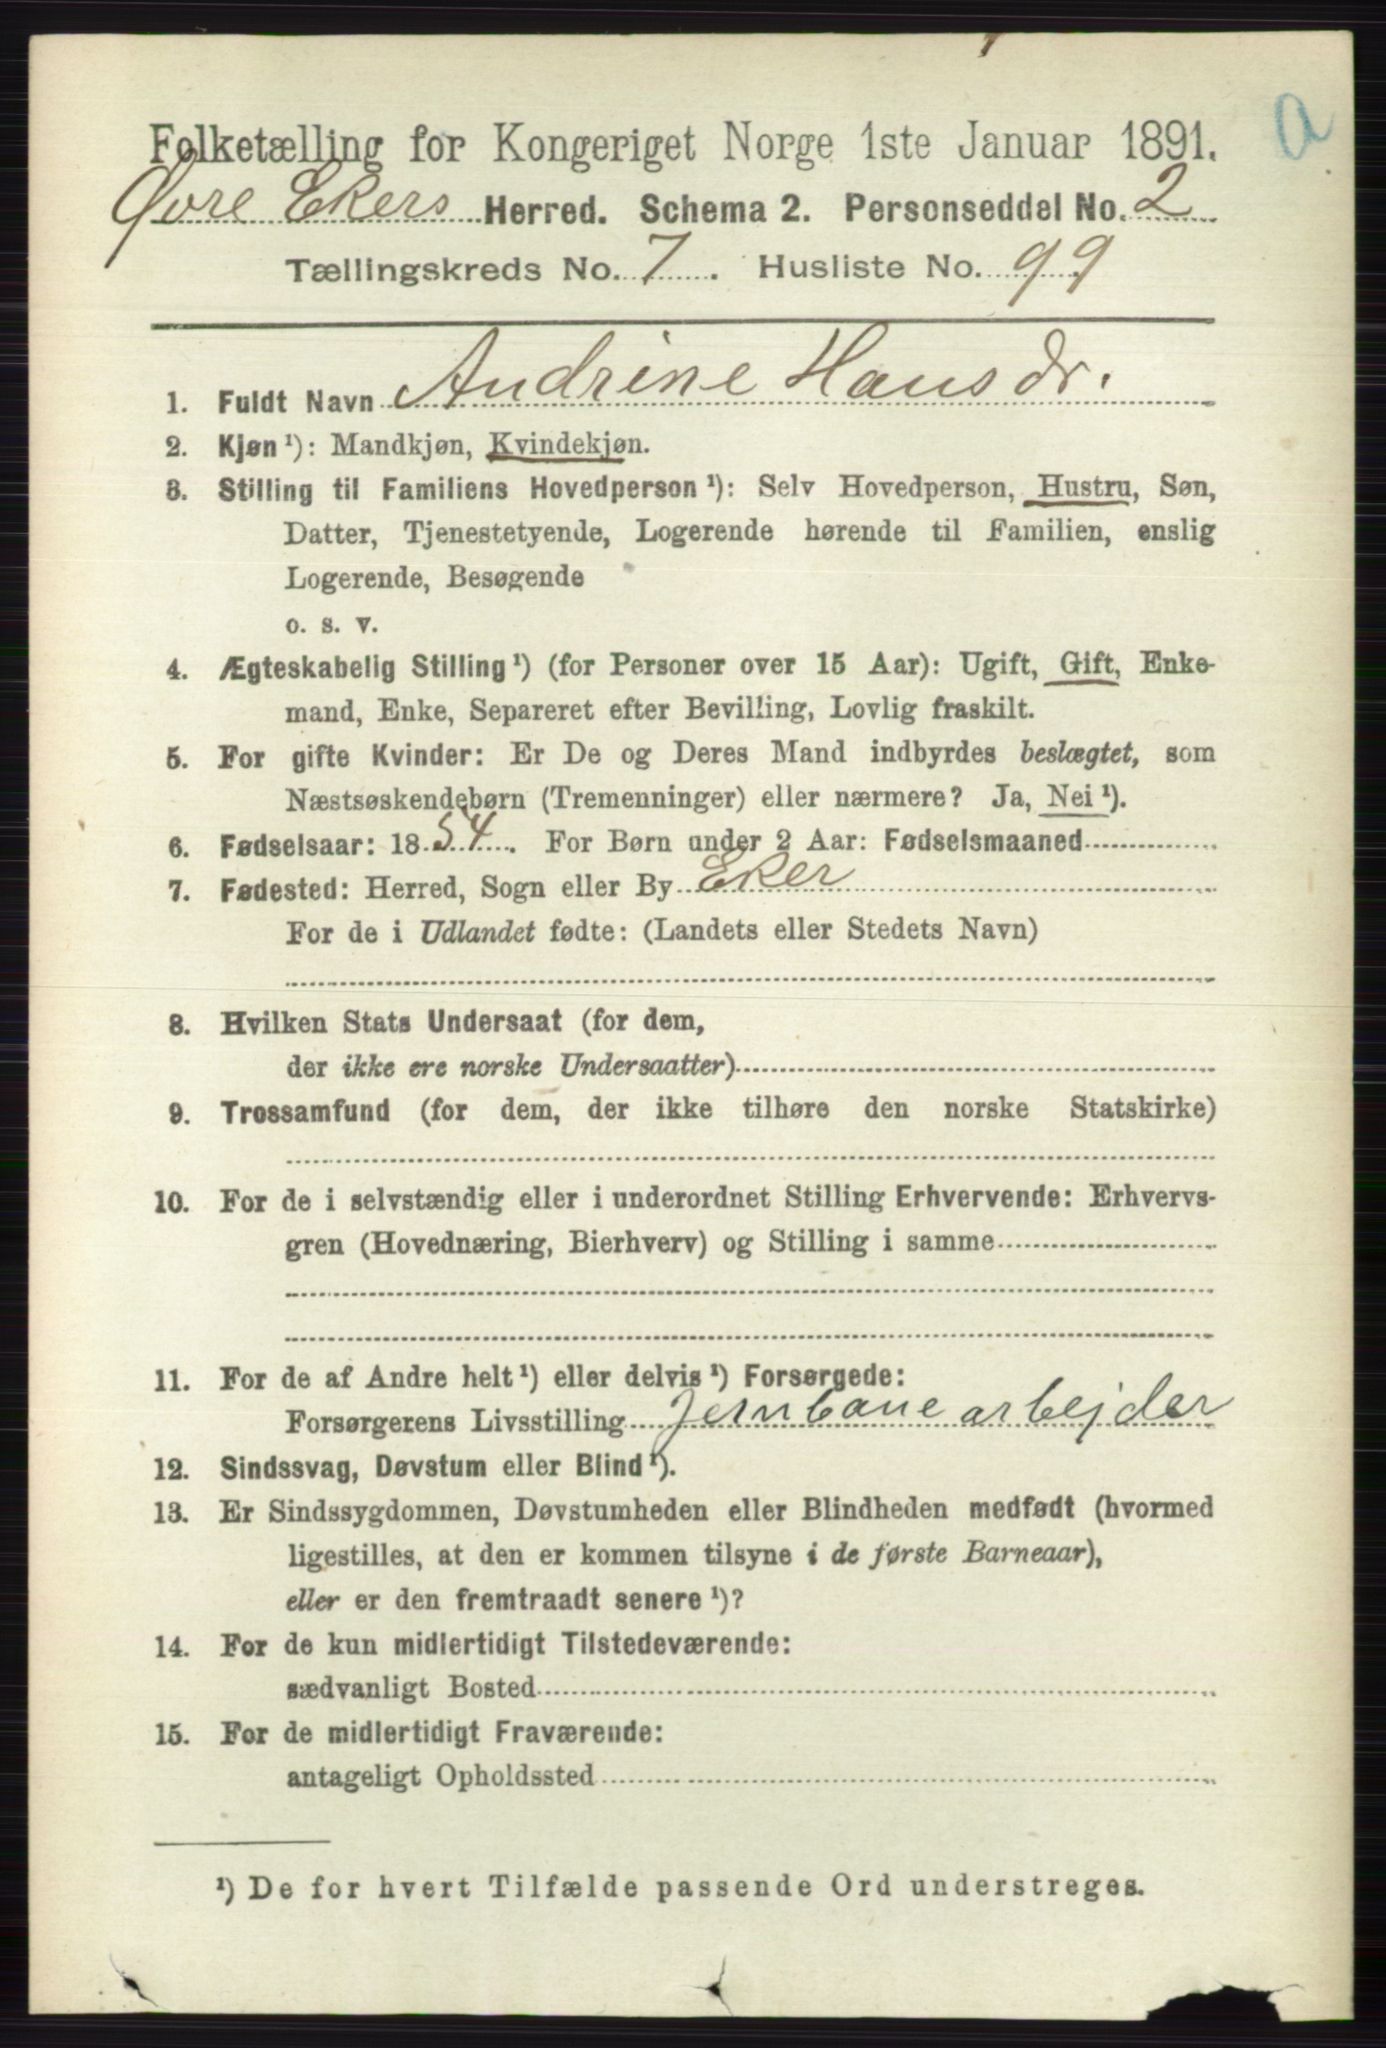 a
Folketælling for Kongeriget Norge 1ste Januar 1891.
Øvre Ekers Herred. Schema 2. Personseddel No. 2
Tællingskreds No. 7. Husliste No. 99
1. Fuldt Navn Andrine Hansdr.
2. Kjøn ¹): Mandkjøn, Kvindekjøn.
3. Stilling til Familiens Hovedperson ¹): Selv Hovedperson, Hustru, Søn,
Datter, Tjenestetyende, Logerende hørende til Familien, enslig
Logerende, Besøgende
o. s. v.
4. Ægteskabelig Stilling ¹) (for Personer over 15 Aar): Ugift, Gift, Enke-
mand, Enke, Separeret efter Bevilling, Lovlig fraskilt.
5. For gifte Kvinder: Er De og Deres Mand indbyrdes beslægtet, som
Næstsøskendebørn (Tremenninger) eller nærmere? Ja, Nei ¹).
6. Fødselsaar: 1854. For Børn under 2 Aar: Fødselsmaaned
7. Fødested: Herred, Sogn eller By Eker
For de i Udlandet fødte: (Landets eller Stedets Navn)
8. Hvilken Stats Undersaat (for dem,
der ikke ere norske Undersaatter)
9. Trossamfund (for dem, der ikke tilhøre den norske Statskirke)
10. For de i selvstændig eller i underordnet Stilling Erhvervende: Erhvervs-
gren (Hovednæring, Bierhverv) og Stilling i samme
11. For de af Andre helt ¹) eller delvis ¹) Forsørgede:
Forsørgerens Livsstilling Jernbanearbejder
12. Sindssvag, Døvstum eller Blind ¹).
13. Er Sindssygdommen, Døvstumheden eller Blindheden medfødt (hvormed
ligestilles, at den er kommen tilsyne i de første Barneaar),
eller er den fremtraadt senere ¹)?
14. For de kun midlertidigt Tilstedeværende:
sædvanligt Bosted
15. For de midlertidigt Fraværende:
antageligt Opholdssted
¹) De for hvert Tilfælde passende Ord understreges.